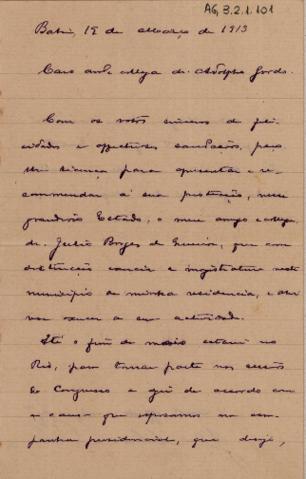 AG, 3.2.1.101
Bahia, 15 de Março de 1913
Caro am.º e collega dr. Adolpho Gordo.
Com os votos sinceros de feli-
cidades e affectuosas saudações, peço-
lhe licença para apresentar e re-
commendar á sua protecção, nesse
grandioso Estado, o meu amigo e collega
dr. Julio Borges de, que com
distincção exerceu a magistratura neste
municipio de minha residencia, e ahi
vae exercer a sua actividade.
Até o fim de maio estarei no
Rio, para tomar parte nas sessões
do Congresso e agir de accordo com
a causa que esposamos na cam-
panha presidencial, que desejo,